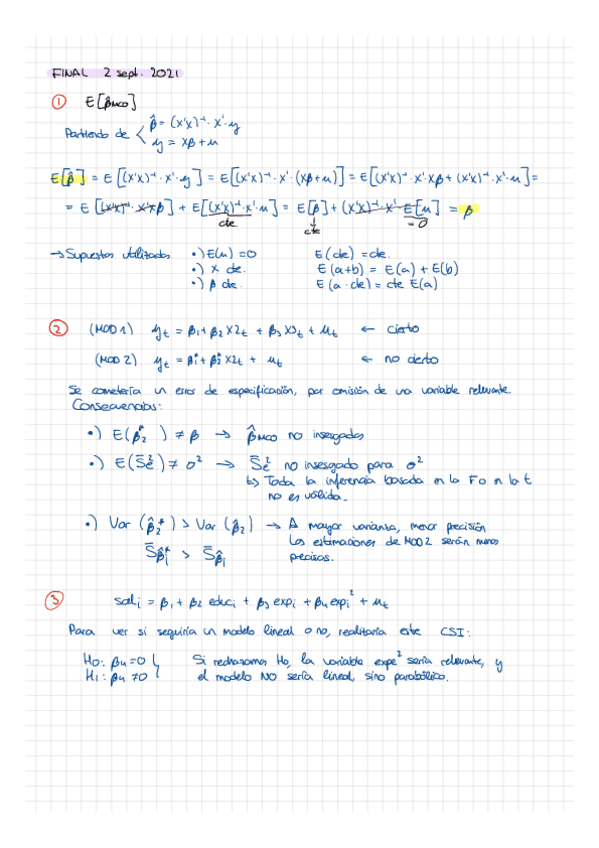 FINAL 2 sept. 2021
① E[β̂MCO]
Partiendo de { β̂ = (X'X)⁻¹·X'·y
y = Xβ+u
E[β̂] = E[(X'X)⁻¹·X'·y] = E[(X'X)⁻¹·X'·(Xβ+u)] = E[(X'X)⁻¹·X'·Xβ + (X'X)⁻¹·X'·u] =
= E[(X'X)⁻¹·X'Xβ] + E[(X'X)⁻¹·X'·u] = E[β] + (X'X)⁻¹·X' E[u] = β
cte cte = 0
→ Supuestos utilizados •) E(u) = 0 E(cte) = cte.
•) X cte. E(a+b) = E(a) + E(b)
•) β cte. E(a·cte) = cte E(a)
② (MOD 1) yt = β1 + β2 X2t + β3 X3t + ut ← cierto
(MOD 2) yt = β1* + β2* X2t + ut ← no cierto
Se cometería un error de especificación, por omisión de una variable relevante.
Consecuencias:
•) E(β̂2*) ≠ β → β̂MCO no insesgados
•) E(S̄e²) ≠ σ² → S̄e² no insesgado para σ²
↳ Toda la inferencia basada en la F o en la t
no es válida.
•) Var(β̂2*) > Var(β̂2) → A mayor varianza, menor precisión
Las estimaciones de MOD 2 serán menos
S̄β̂i* > S̄β̂i precisas.
③ sali = β1 + β2 educi + β3 expi + β4 expi² + ut
Para ver si seguiría un modelo lineal o no, realizaría este CSI:
H0: β4 = 0 } Si rechazamos H0, la variable expe² sería relevante, y
H1: β4 ≠ 0 } el modelo NO sería lineal, sino parabólico.